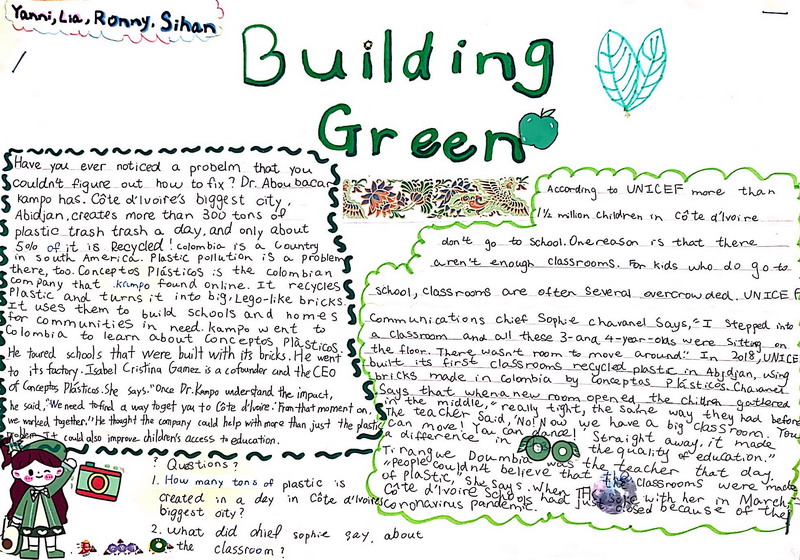 Yanni, Lia, Ronny, Sihan
Building
Green
Have you ever noticed a probelm that you
couldn't figure out how to fix? Dr. Abou bacar
kampo has. Côte d'Ivoire's biggest city,
Abidjan, creates more than 300 tons of
plastic trash trash a day, and only about
5% of it is Recycled! colombia is a Country
in south America. Plastic pollution is a problem
there, too. Conceptos Plásticos is the colombian
company that kampo found online. It recycles
Plastic and turns it into big, Lego-like bricks.
It uses them to build schools and homes
for communities in need. kampo went to
Colombia to learn about Conceptos Plásticos
He toured schools that were built with its bricks. He went
to its factory. Isabel Cristina Gamez is a cofunder and the CEO
of Conceptos Plásticos. She says. "Once Dr. Kampo understand the impact,
he said, "We need to find a way to get you to Côte d'Ivoire.' From that moment on,
we worked together." He thought the company could help with more than just the plastic
problem. It could also improve children's access to education.
? Questions?
1. How many tons of plastic is
created in a day in Côte d'Ivoires
biggest city?
2. What did chief sophie say, about
the classroom?
According to UNICEF more than
1½ million children in Côte d'Ivoire
don't go to school. One reason is that there
aren't enough classrooms. For kids who do go to
school, classrooms are often several overcrowded. UNICEF
Communications chief Sophie chavanel says, "I stepped into
a classroom and all these 3-and 4-year-olds were sitting on
the floor. There wasn't room to move around." In 2018, UNICE
built its first classrooms recycled plastic in Abidjan, using
bricks made in colombia by conceptos Plásticos. Chavanel
Says that when a new room opened the children gathered
in the middle, "really tight, the same way they had before
The teacher said, 'No! Now we have a big classroom. You
can move! You can dance! Straight away, it made
a difference in the quality of education."
Tirangue Doumbia was the teacher that day.
"People couldn't believe that the classrooms were made
of plastic, she says. When spoke with her in March,
Côte d'Ivoire schools had just closed because of the
coronavirus pandemic.